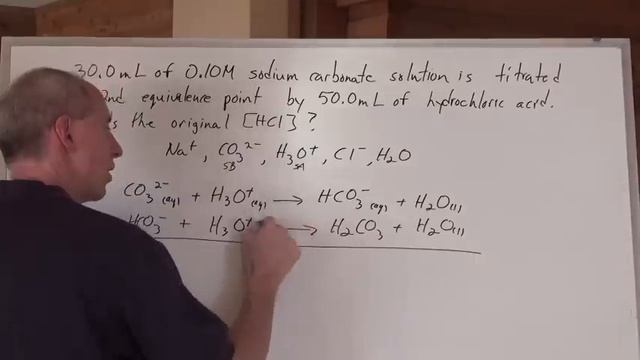 30.0mL of 0.10M sodium carbonate solution is titrated
2nd equivalence point by 50.0mL of hydrochloric acid.
the original [HCl]?
Na⁺, CO₃²⁻, H₃O⁺, Cl⁻, H₂O
SB SA
CO₃²⁻(aq) + H₃O⁺(aq) → HCO₃⁻(aq) + H₂O(l)
HCO₃⁻ + H₃O⁺ → H₂CO₃ + H₂O(l)